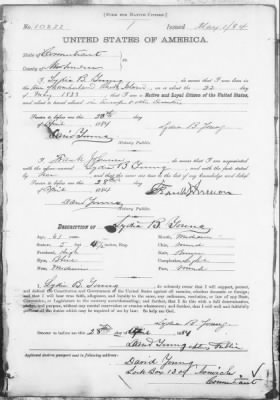 [FORM FOR NATIVE CITIZEN.]
No. Issued, May 1/84
UNITED STATES OF AMERICA.
State of Connecticut
County of
I, Lydia B Young, do swear that I was born in the
town of Rhode Island, on the 22 day
of May 1823; that I am a Native and Loyal Citizen of the United States,
and about to travel abroad
Sworn to before me this 28th day
of April 1884 Lydia B Young
David Young
Notary Public.
I, Frank, do swear that I am acquainted
with the above-named Lydia B Young, and with the facts stated
by her, and that the same are true to the best of my knowledge and belief.
Sworn to before me this 28th day
of April 1884
David Young
Notary Public.
DESCRIPTION OF Lydia B Young
Age: Mouth: Medium
Stature: 5 feet inches, Eng. Chin: round
Forehead: High Hair: Brown
Eyes: Blue Complexion: Light
Nose: Medium Face: round
I, Lydia B Young, do solemnly swear that I will support, protect,
and defend the Constitution and Government of the United States against all enemies, whether domestic or foreign;
and that I will bear true faith, allegiance, and loyalty to the same, any ordinance, resolution, or law of any State,
Convention, or Legislature to the contrary notwithstanding; and further, that I do this with a full determination,
pledge, and purpose, without any mental reservation or evasion whatsoever; and further, that I will well and faithfully
perform all the duties which may be required of me by law: So help me God.
Lydia B Young
Sworn to before me this 28th day April 1884
David Young Notary Public
Applicant desires passport sent to following address:
David Young
Lock Box 13 of Norwich
Connecticut